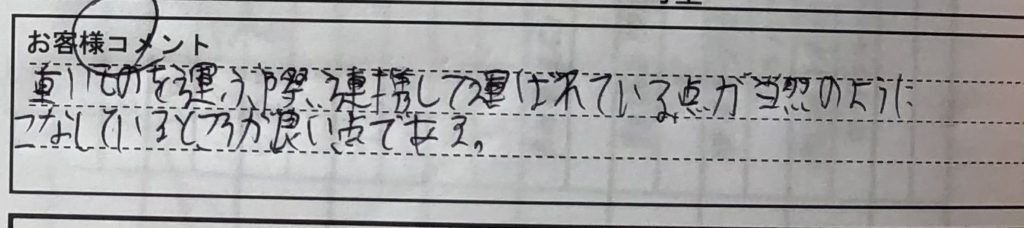 お客様コメント
重いものを運ぶ際、連携して運ばれている点が当然のように
こなしているところが良い点である。